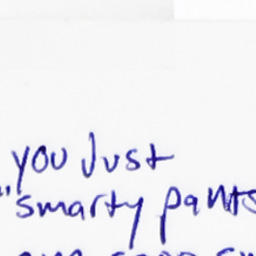 you Just
"smarty pants